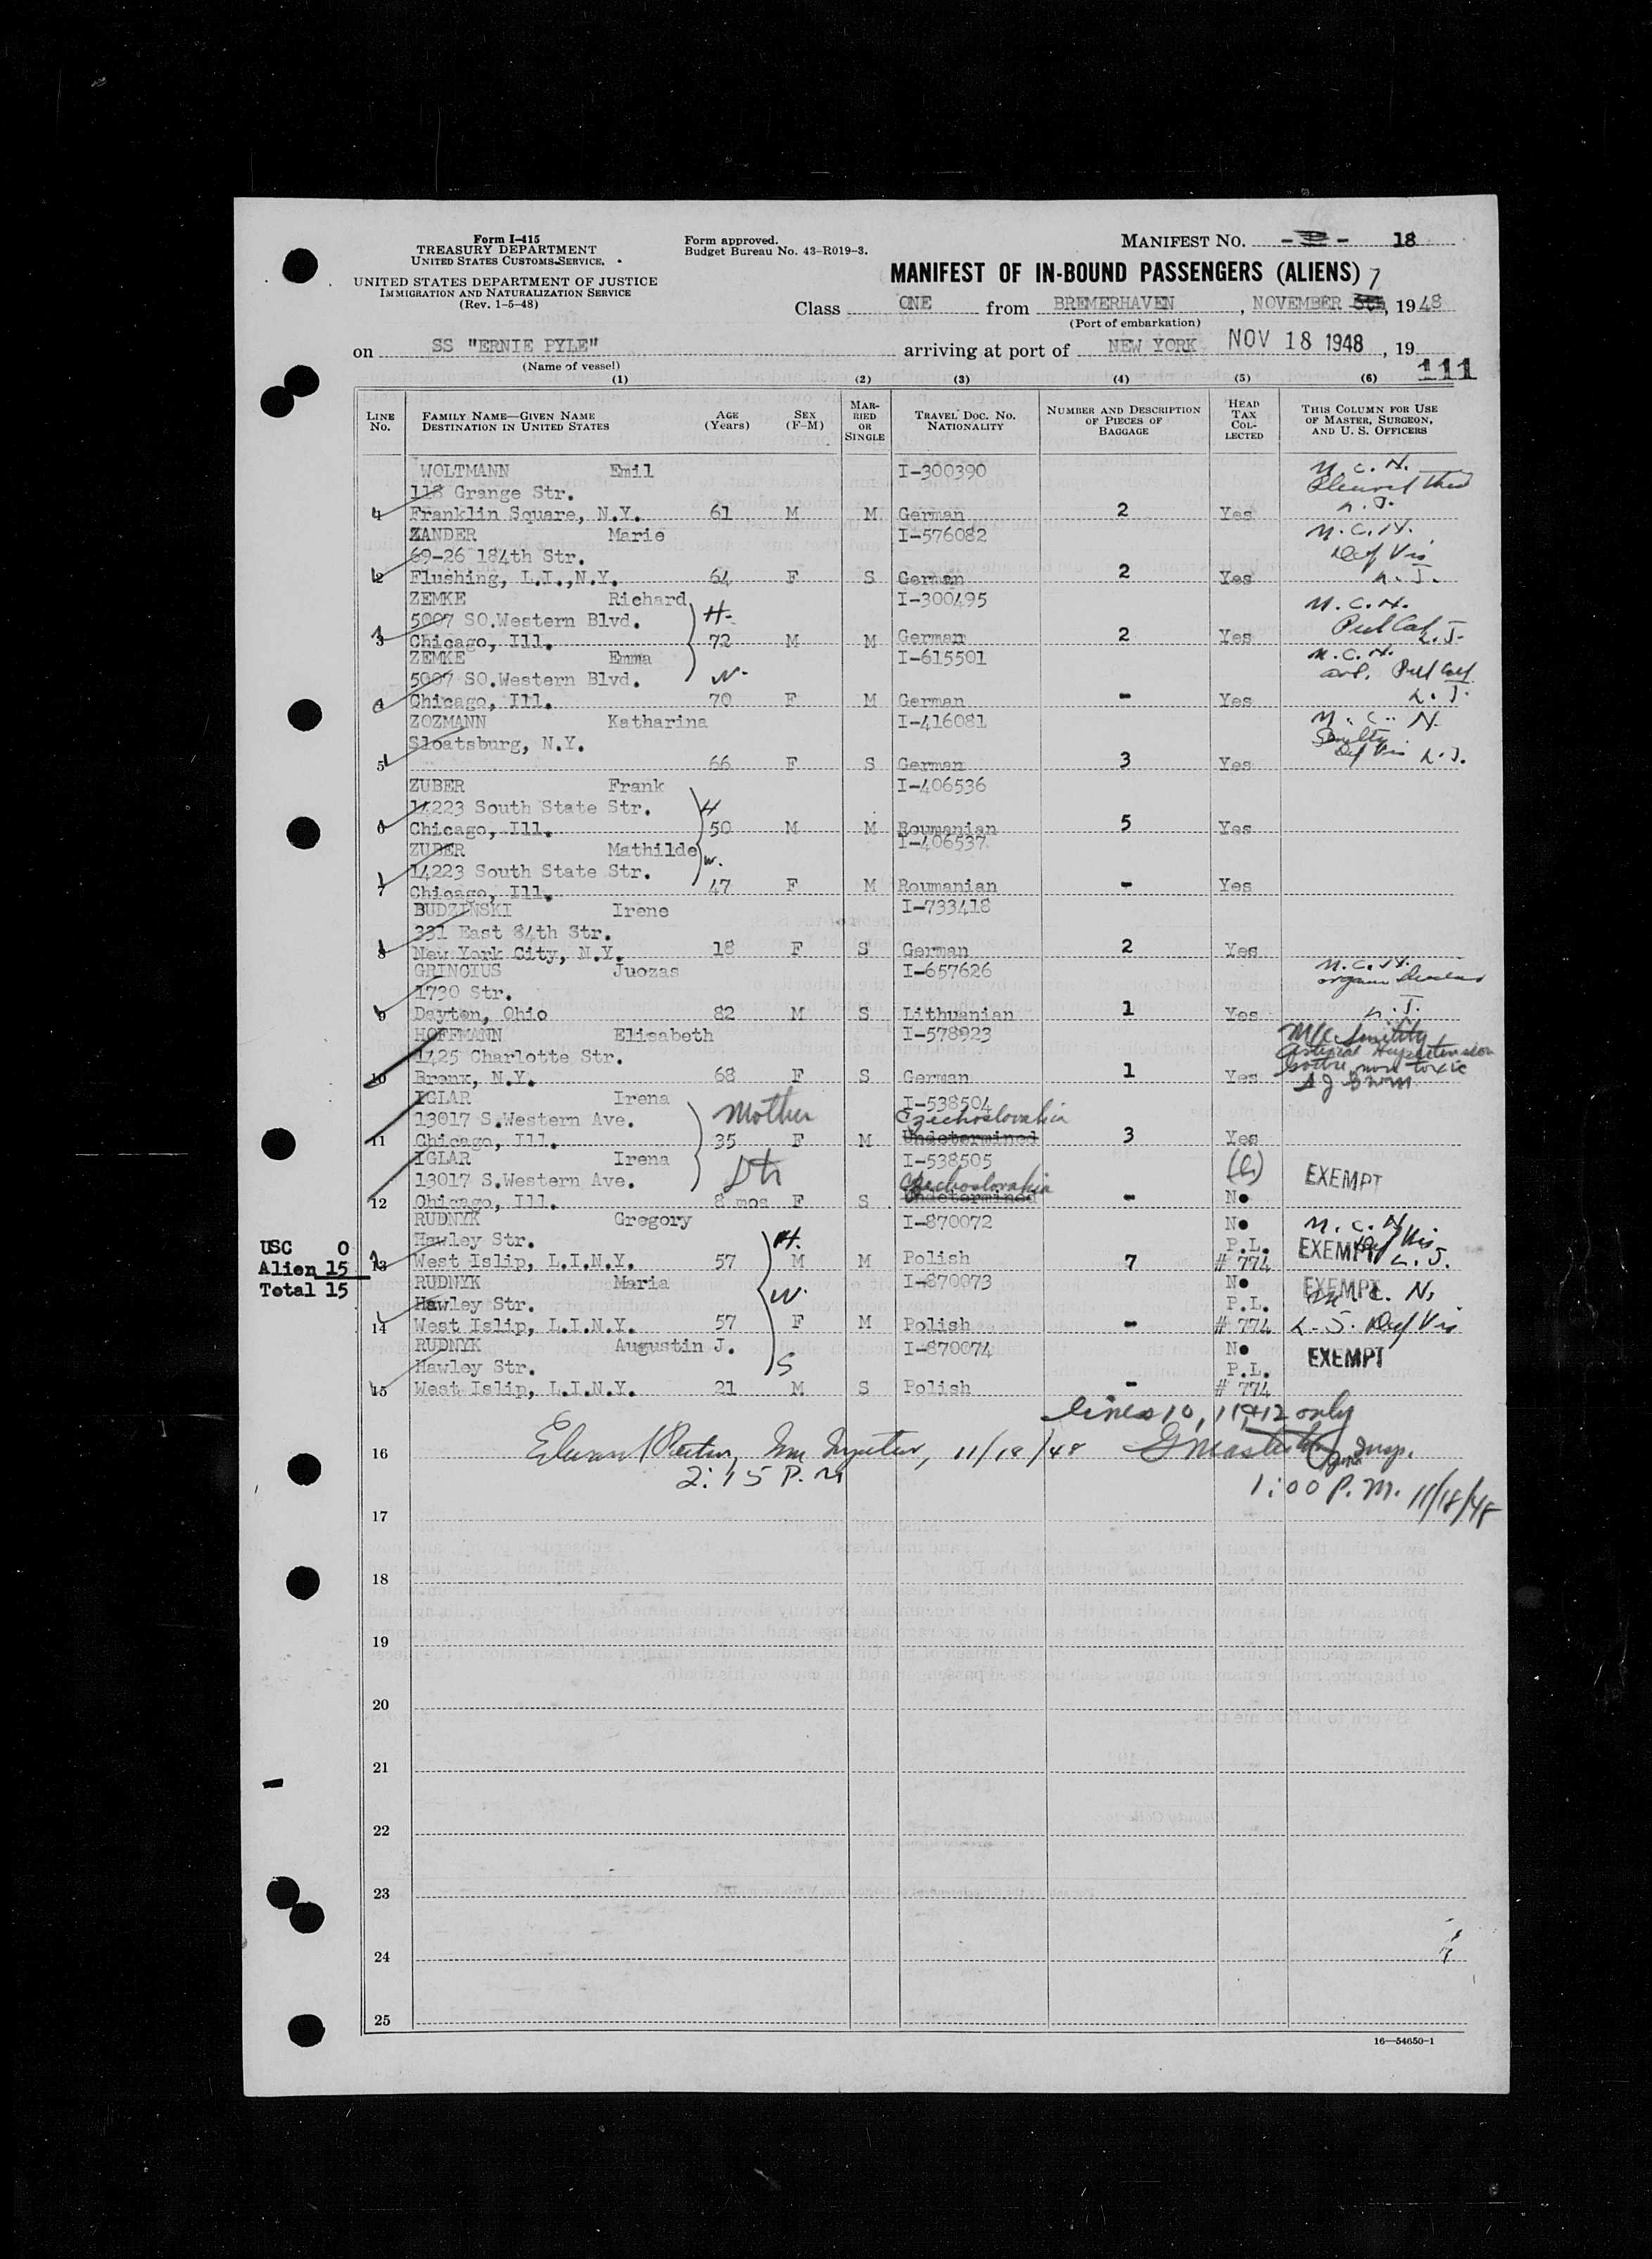 Form I-415
TREASURY DEPARTMENT
UNITED STATES CUSTOMS SERVICE.
UNITED STATES DEPARTMENT OF JUSTICE
IMMIGRATION AND NATURALIZATION SERVICE
(Rev. 1-5-48)
Form approved.
Budget Bureau No. 43-R019-3.
MANIFEST NO. 18
MANIFEST OF IN-BOUND PASSENGERS (ALIENS)
Class ONE from BREMERHAVEN, NOVEMBER 7, 1948
(Port of embarkation)
on SS "ERNIE PYLE" arriving at port of NEW YORK NOV 18 1948, 19
(Name of vessel)
111
(1) (2) (3) (4) (5) (6)
LINE NO. FAMILY NAME—GIVEN NAME DESTINATION IN UNITED STATES AGE (Years) SEX (F-M) MARRIED OR SINGLE TRAVEL DOC. NO. NATIONALITY NUMBER AND DESCRIPTION OF PIECES OF BAGGAGE HEAD TAX COLLECTED THIS COLUMN FOR USE OF MASTER, SURGEON, AND U. S. OFFICERS
WOLTMANN Emil I-300390 M.C.N.
118 Grange Str.
Franklin Square, N.Y. 61 M M German 2 Yes L.J.
ZANDER Marie I-576082 M.C.N.
69-26 184th Str. Def Vis
2 Flushing, L.I.,N.Y. 64 F S German 2 Yes L.J.
ZEMKE Richard I-300495 M.C.N.
5007 SO.Western Blvd. H-
3 Chicago, Ill. 72 M M German 2 Yes L.J.
ZEMKE Emma I-615501 M.C.N.
5007 SO.Western Blvd. W-
4 Chicago, Ill. 70 F M German - Yes L.J.
ZOZMANN Katharina I-416081 M.C.N.
Sloatsburg, N.Y. Senility
5 66 F S German 3 Yes Def Vis L.J.
ZUBER Frank I-406536
14223 South State Str. H
6 Chicago, Ill. 50 M M Roumanian 5 Yes
ZUBER Mathilde I-406537 W.
14223 South State Str.
7 Chicago, Ill. 47 F M Roumanian - Yes
BUDZINSKI Irene I-733418
331 East 84th Str.
8 New York City, N.Y. 18 F S German 2 Yes
GRINCIUS Juozas I-657626 M.C.N.
1730 Str.
9 Dayton, Ohio 82 M S Lithuanian 1 Yes L.J.
HOFFMANN Elisabeth I-578923 Senility
1425 Charlotte Str. Hypertension
10 Bronx, N.Y. 68 F S German 1 Yes non toxic
IGLAR Irena I-538504
13017 S.Western Ave. Mother Czechoslovakia
11 Chicago, Ill. 35 F M Undetermined 3 Yes
IGLAR Irena I-538505 EXEMPT
13017 S.Western Ave. Dtr Czechoslovakia
12 Chicago, Ill. 8 mos F S Undetermined - No
RUDNYK Gregory I-870072 No M.C.N.
Hawley Str. H. P.L. EXEMPT Def Vis
13 West Islip, L.I.N.Y. 57 M M Polish 7 # 774 L.J.
RUDNYK Maria I-870073 No EXEMPT M.C.N.
Hawley Str. W. P.L.
14 West Islip, L.I.N.Y. 57 F M Polish - # 774 L.J. Def Vis
RUDNYK Augustin J. I-870074 No EXEMPT
Hawley Str. S P.L.
15 West Islip, L.I.N.Y. 21 M S Polish - # 774
USC 0
Alien 15
Total 15
lines 10, 11 + 12 only
16 11/18/48 Insp.
2:15 P.M
1:00 P.M. 11/18/48
17
18
19
20
21
22
23
24
25
16—54650-1